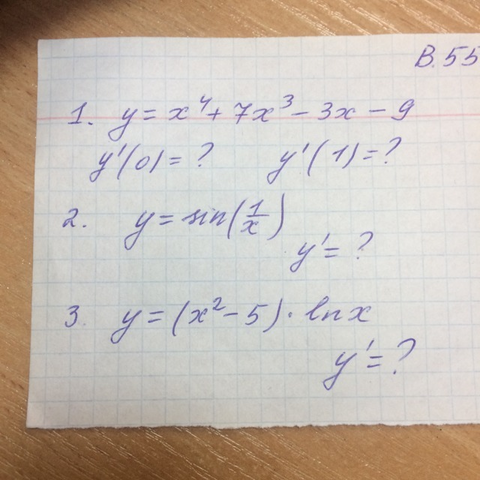 В.55
1. y = x⁴ + 7x³ - 3x - 9
y'(0) = ? y'(1) = ?
2. y = sin(1/x)
y' = ?
3 y = (x² - 5) · ln x
y' = ?